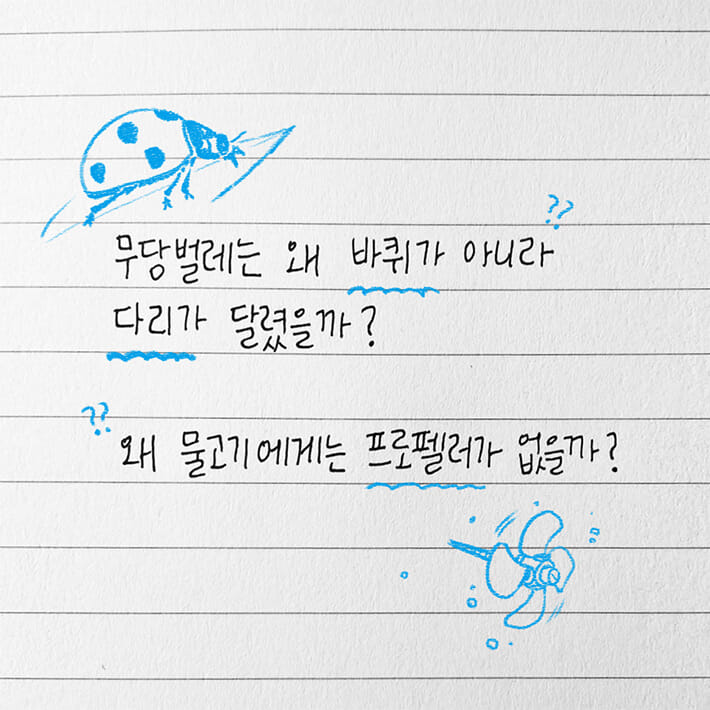 ??
무당벌레는 왜 바퀴가 아니라
다리가 달렸을까?
??
왜 물고기에게는 프로펠러가 없을까?